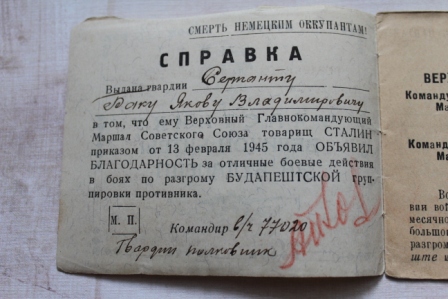 СМЕРТЬ НЕМЕЦКИМ ОККУПАНТАМ!
СПРАВКА
Выдана гвардии Сержанту
Раку Якову Владимировичу
в том, что ему Верховный Главнокомандующий
Маршал Советского Союза товарищ СТАЛИН
приказом от 13 февраля 1945 года ОБЪЯВИЛ
БЛАГОДАРНОСТЬ за отличные боевые действия
в боях по разгрому БУДАПЕШТСКОЙ груп-
пировки противника.
М. П.
Командир в/ч 77020
Гвардии полковник
ВЕР
Командую
Ма
Команду
Ма
Во
вии вой
месячно
большог
разгром
ште и